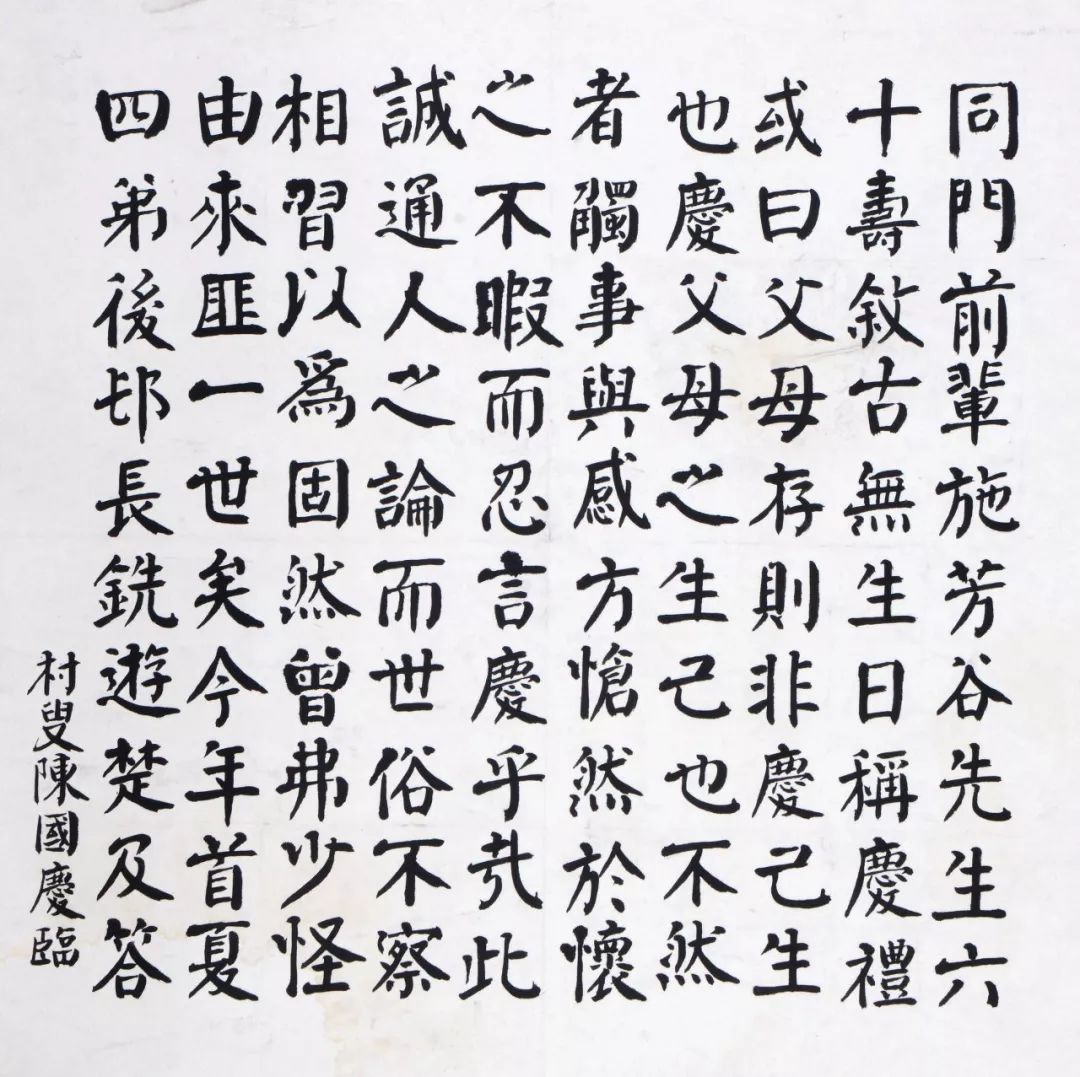 同門前輩施芳谷先生六
十壽敘古無生日稱慶禮
或曰父母存則非慶己生
也慶父母之生己也不然
者觸事與感方愴然於懷
之不暇而忍言慶乎哉此
誠通人之論而世俗不察
相習以爲固然曾弗少怪
由來匪一世矣今年首夏
四弟後邨長銑遊楚及答
村叟陳國慶臨